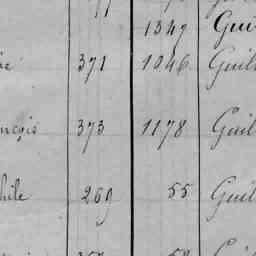 1347 Gui
371 1046 Guil
ncois 373 1178 Guil
hile 269 55 Guil